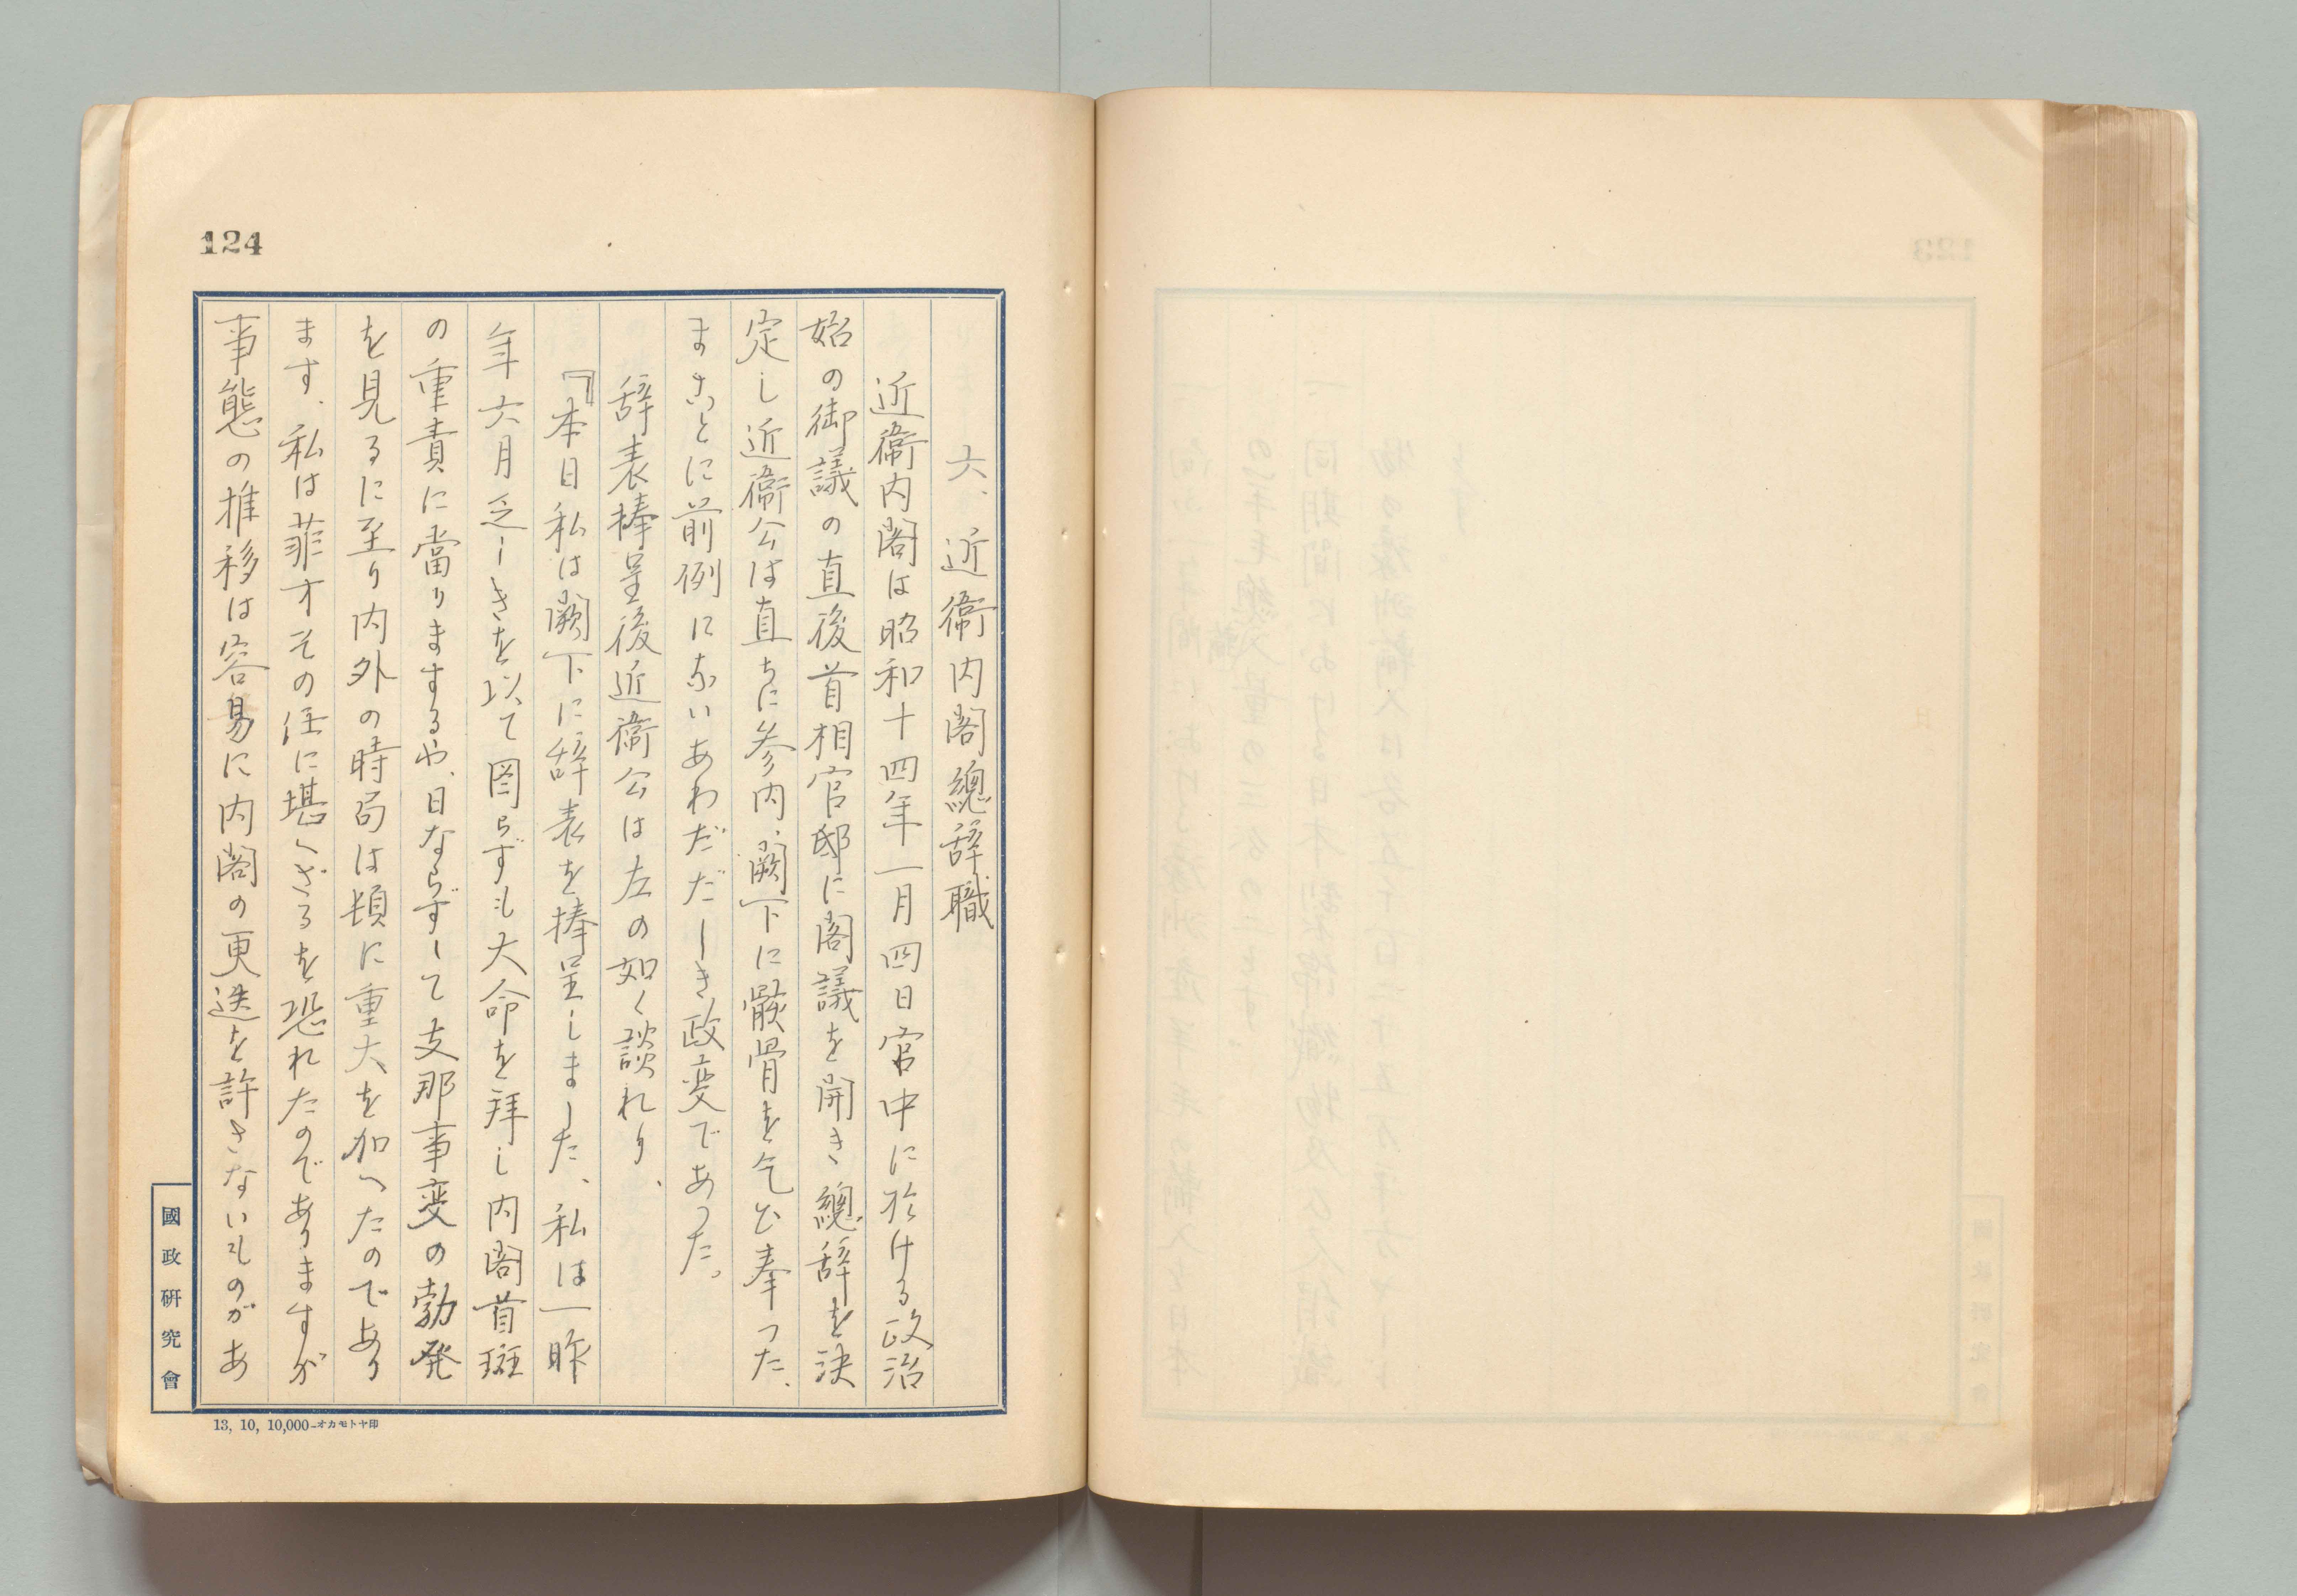 124
六、近衞内閣總辞職
近衞内閣は昭和十四年一月四日宮中に於ける政治
始の御議の直後首相官邸に閣議を開き總辞を決
定し近衞公は直ちに参内、闕下に骸骨を乞ひ奉った、
まことに前例にないあわだだしき政変であった。
辞表捧呈後近衞公は左の如く談れり、
『本日私は闕下に辞表を捧呈しました、私は一昨
年六月乏しきを以て図らずも大命を拜し内閣首班
の重責に當りまするや、日ならずして支那事変の勃発
を見るに至り内外の時局は頓に重大を加へたのであり
ます、私は菲才その任に堪へざるを恐れたのでありますが
事態の推移は容易に内閣の更迭を許さないものがあ
國政研究會
13, 10, 10,000-オカモトヤ印